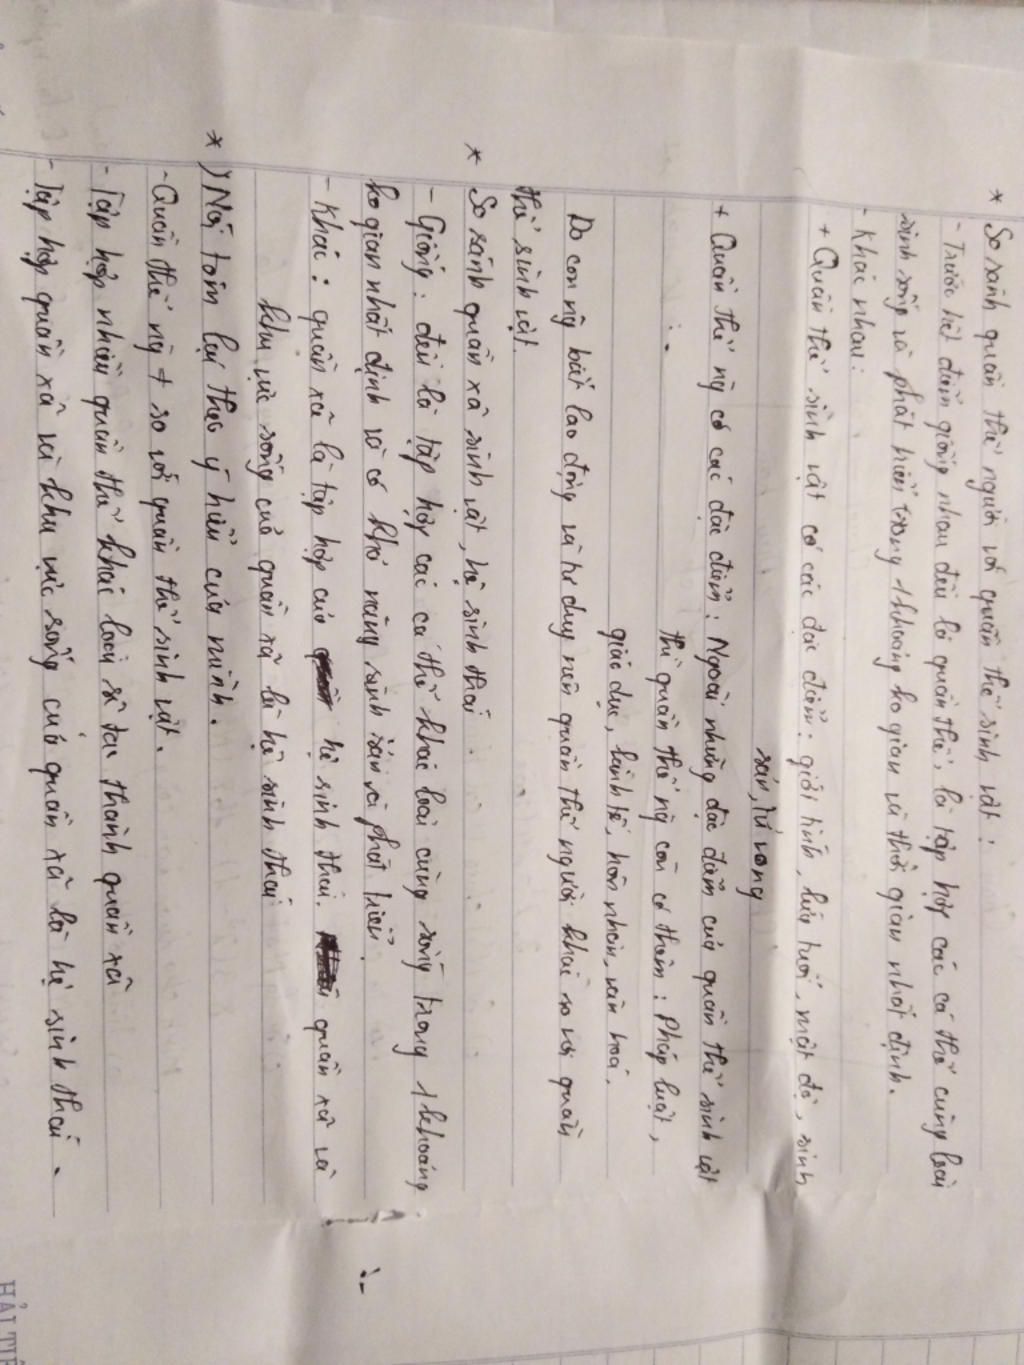 * So sánh quần thể người với quần thể sinh vật :
- Trước hết điểm giống nhau đều là quần thể, là tập hợp các cá thể cùng loài
sinh sống và phát triển trong 1 khoảng ko gian và thời gian nhất định.
- Khác nhau:
+ Quần thể sinh vật có các đặc điểm: giới tính, lứa tuổi, mật độ, sinh
sản, tử vong
+ Quần thể ng có các đặc điểm: Ngoài những đặc điểm của quần thể sinh vật
thì quần thể ng còn có thêm : Pháp luật,
giáo dục, kinh tế, hôn nhân, văn hoá.
Do con ng biết lao động và tư duy nên quần thể người khác so với quần
thể sinh vật.
* So sánh quần xã sinh vật, hệ sinh thái
- Giống : đều là tập hợp các cá thể khác loài cùng sống trong 1 khoảng
ko gian nhất định và có khả năng sinh sản và phát triển.
- Khác : quần xã là tập hợp của hệ sinh thái. quần xã và
khu vực sống của quần xã là hệ sinh thái
* ) Nói tóm lại theo ý hiểu của mình.
- Quần thể ng + so với quần thể sinh vật.
- Tập hợp nhiều quần thể khác loài sẽ tạo thành quần xã
- Tập hợp quần xã và khu vực sống của quần xã là hệ sinh thái.
HẢI TIẾ